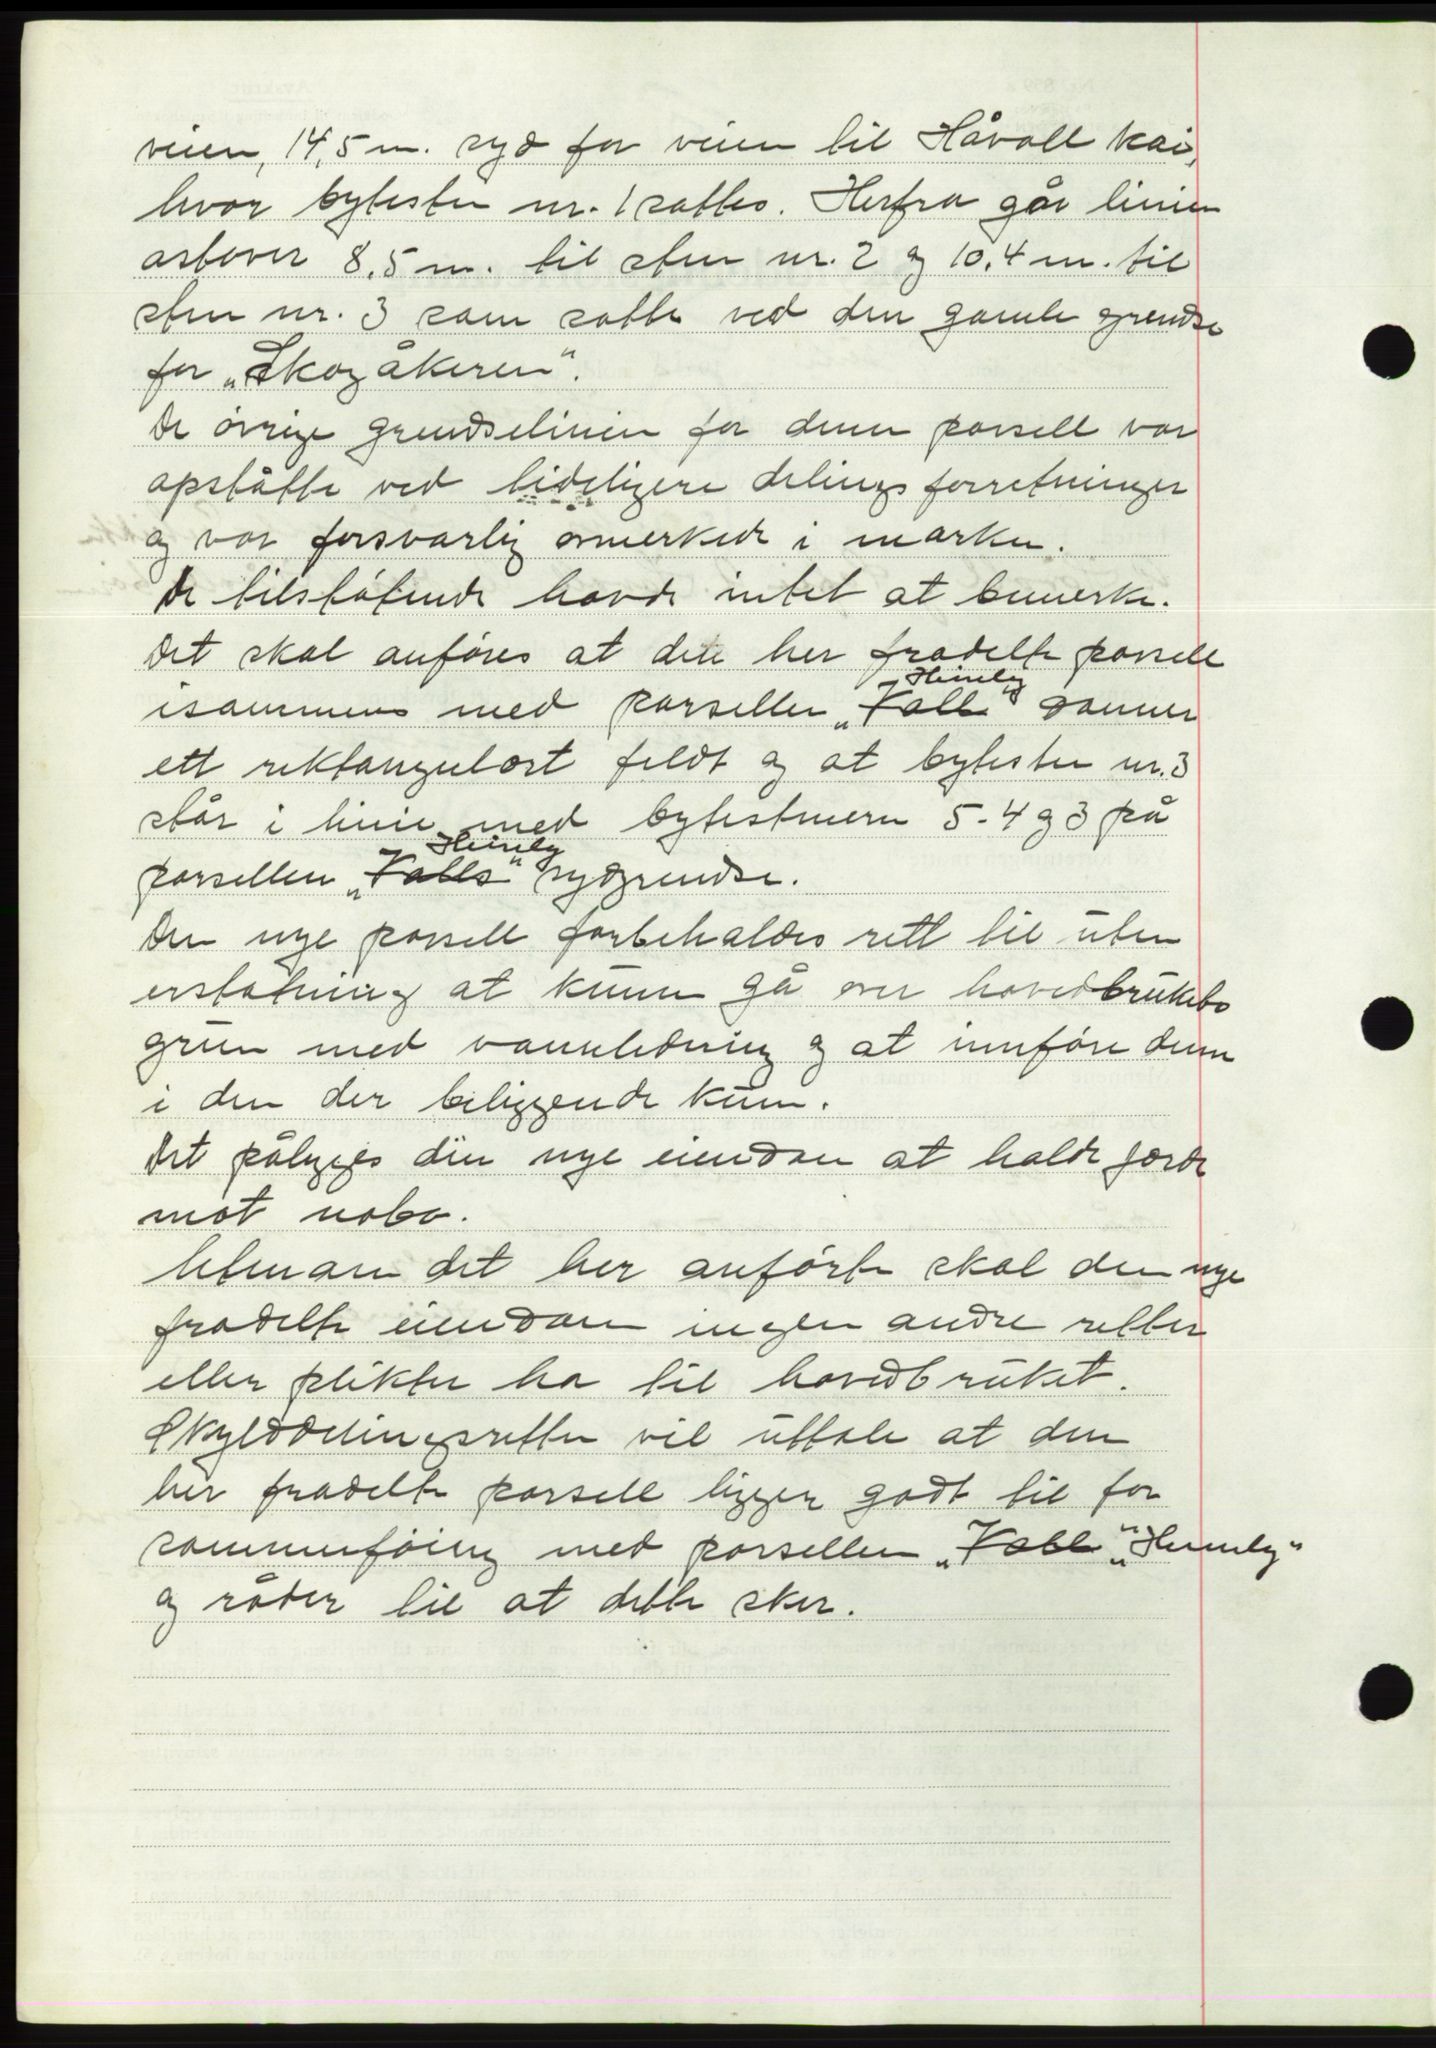 veien, 14,5 m. syd for veien til Håvoll kai,
hvor bytesten nr. 1 sattes. Herfra går linien
østover 8,5 m. til sten nr. 2 og 10,4 m. til
sten nr. 3 som satte ved den gamle grendse
for „Skogåkeren".
De øvrige grendselinier for denne parsell var
opståtte ved tideligere delings forretninger
og var forsvarlig avmerkede i marken.
De tilstøtende havde intet at bemerke.
Det skal anføres at dete her fradelte parsell
isammens med parsellen „Voll" Heimly danner
ett rektangulært feldt og at bytesten nr. 3
står i linie med bytestenern 5-4 og 3 på
parsellen „Volls" Heimly sydgrendse.
Den nye parsell forbeholdes rett til uten
erstatning at kunne gå over hovedbrukets
grun med vannledning og at innføre denne
i den der beliggende kum.
Det pålegges den nye eiendom at holde gjerde
mot nabo.
Utenom det her anførte skal den nye
fradelte eiendom ingen andre retter
eller plikter ha til hovedbruket.
Skylddelingsretten vil uttale at den
her fradelte parsell ligger godt til for
sammenføing med parsellen „Voll" „Heimly"
og råder til at dette sker.